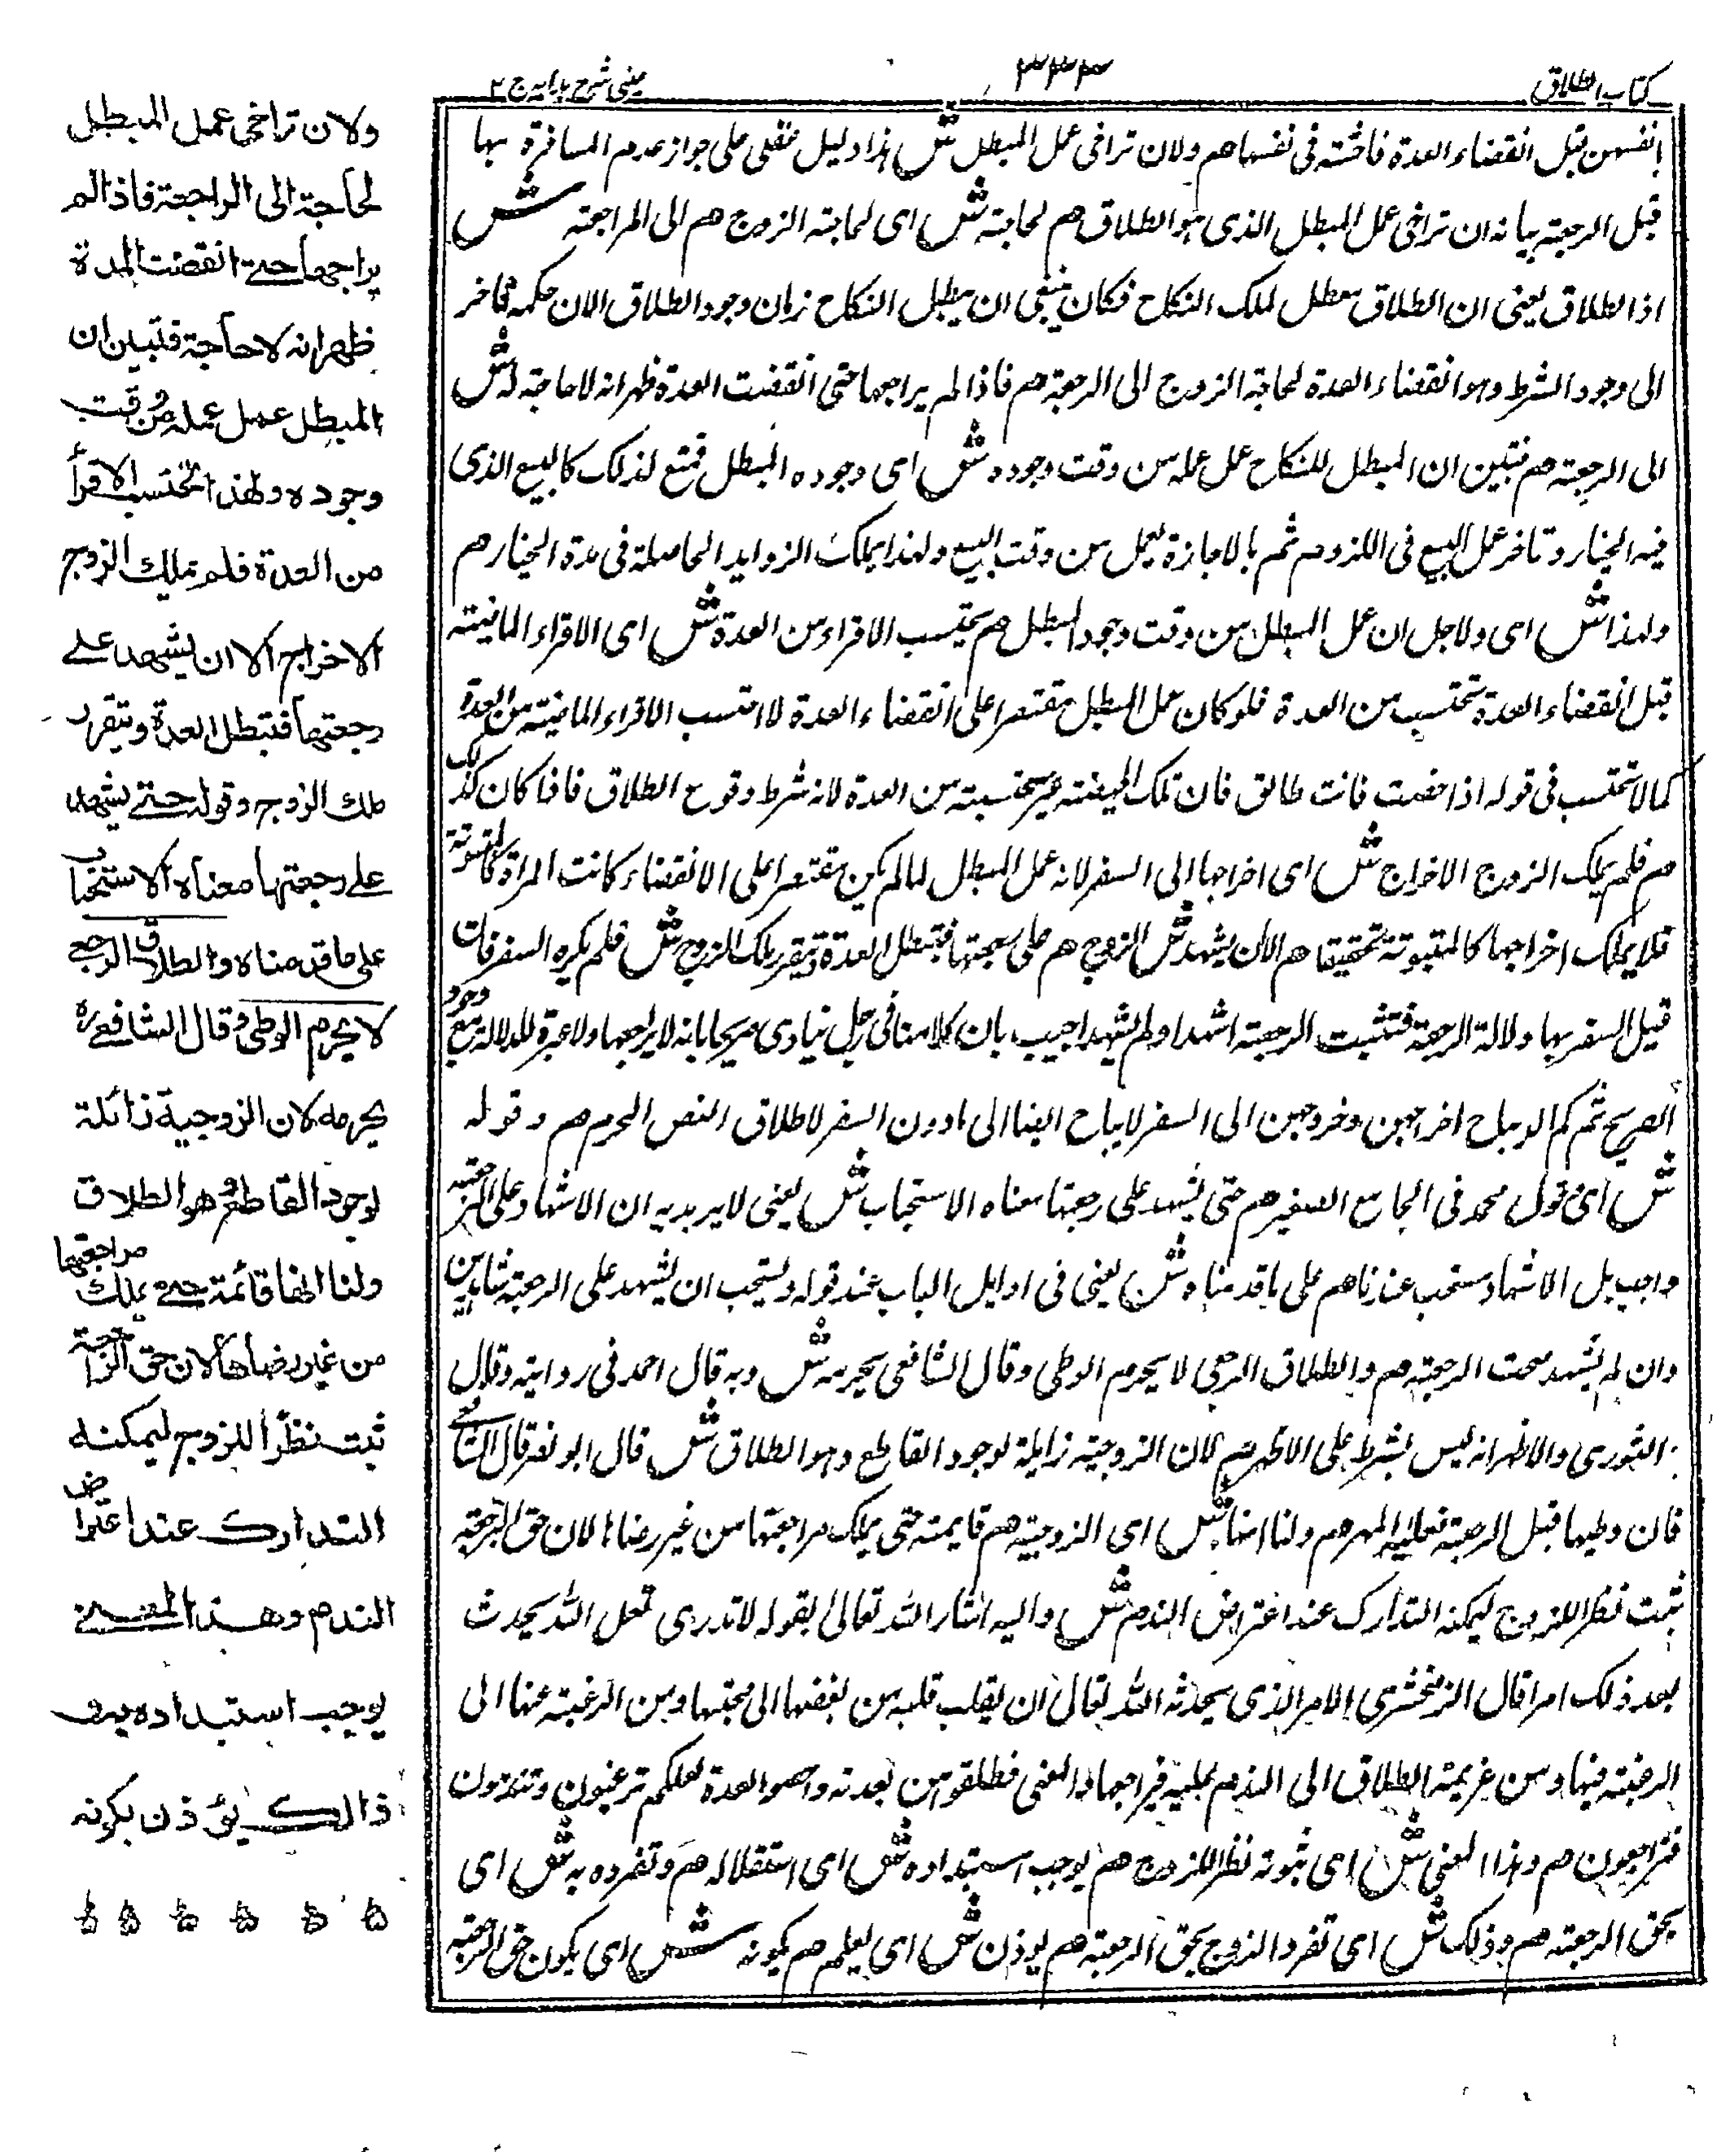 كتاب الطلاق
٣٣٣
عينى شرح هدايه ج ٢
بانفسهن قبل انقضاء العدة فاحشة فى نفسها هم ولان تراخى عمل المبطل ش هذا دليل عقلى على جواز عدم المسافرة بها
قبل الرجعة بيانه ان تراخى عمل المبطل الذى هو الطلاق هم لحاجته ش اى لحاجة الزوج هم الى المراجعة ش
اذ الطلاق يعنى ان الطلاق مبطل لملك النكاح فكان ينبغى ان يبطل النكاح زمان وجود الطلاق الا ان حكمه تاخر
الى وجود الشرط وهو انقضاء العدة لحاجة الزوج الى الرجعة هم فاذا لم يراجعها حتى انقضت العدة ظهر انه لا حاجة له ش
الى الرجعة هم فتبين ان المبطل للنكاح عمل عمله من وقت وجوده ش اى وجوده المبطل لذلك كالبيع الذى
فيه الخيار وتاخر عمل البيع فى اللزوم ثم بالاجازة يعمل من وقت البيع ولهذا يملك الزوايد الحاصلة فى مدة الخيار هم
ولهذا ش اى ولاجل ان عمل المبطل من وقت وجود المبطل هم يحتسب الاقراء من العدة ش اى الاقراء الماضية
قبل انقضاء العدة تحتسب من العدة فلو كان عمل المبطل مقتصرا على انقضاء العدة لا احتسب الاقراء الماضية من العدة
كما لا تحتسب فى قوله اذا حضت فانت طالق فان تلك الحيضة غير محتسبة من العدة لانه شرط وقوع الطلاق فاذا كان كذلك
هم فلم يملك الزوج الاخراج ش اى اخراجها الى السفر لانه عمل المبطل لما لم يكن مقتصرا على الانقضاء كانت المراة كالمبتوتة
فلا يملك اخراجها كالمبتوتة تحقيقا هم الا ان يشهد ش الزوج هم على رجعتها فتبطل العدة ويتقرر ملك الزوج ش فلم يكره السفر فان
قيل السفر بها دلالة الرجعة فتثبت الرجعة اشهد او لم يشهد اجيب بان كلامنا فى رجل ينادى صريحا بانه لا يراجعها ولا عبرة للدلالة مع وجود
الصريح ثم كم الا يباح اخراجهن وخروجهن الى السفر لا يباح ايضا الى ما دون السفر لاطلاق النص المحرم هم وقوله
ش اى قول محمد فى الجامع الصغير هم حتى يشهد على رجعتها معناه الاستحباب ش يعنى لا يريد به ان الاشهاد على الرجعة
واجب بل الاشهاد مستحب عندنا هم على ما قدمناه ش يعنى فى اوايل الباب عند قوله ويستحب ان يشهد على الرجعة شاهدين
وان لم يشهد صحت الرجعة هم والطلاق الرجعى لا يحرم الوطى وقال الشافعى يحرمه ش وبه قال احمد فى رواية وقال
الثورى والاظهر انه ليس بشرط على الاظهر هم لان الزوجية زايلة لوجود القاطع وهو الطلاق ش قال ابو نصر قال الشافعى
فان وطيها قبل الرجعة فعليه المهر هم ولنا انها ش اى الزوجية هم قايمة حتى يملك مراجعتها من غير رضاها لان حق الرجعة
ثبت نظرا للزوج ليمكنه التدارك عند اعتراض الندم ش واليه اشار الله تعالى بقوله لا تدرى لعل الله يحدث
بعد ذلك امرا قال الزمخشرى الامر الذى يحدثه الله تعالى ان يقلب قلبه من بغضها الى محبتها ومن الرغبة عنها الى
الرغبة فيها ومن عزيمة الطلاق الى الندم عليه فيراجعها والمعنى فطلقوهن لعدتهن واحصوا العدة لعلكم ترغبون وتندمون
فتراجعون هم وهذا المعنى ش اى ثبوته نظرا للزوج هم يوجب استبداده ش اى استقلاله هم وتفرده به ش اى
بحق الرجعة هم وذلك ش اى تفرد الزوج بحق الرجعة هم يوذن ش اى يعلم هم بكونه ش اى بكون حق الرجعة
ولان تراخى عمل المبطل
لحاجته الى المراجعة فاذا لم
يراجعها حتى انقضت المدة
ظهر انه لا حاجة فتبين ان
المبطل عمل عمله من وقت
وجوده ولهذا تحتسب الاقراء
من العدة فلم يملك الزوج
الاخراج الا ان يشهد على
رجعتها فتبطل العدة ويتقرر
ملك الزوج وقوله حتى يشهد
على رجعتها معناه الاستحباب
على ما قدمناه والطلاق الرجعى
لا يحرم الوطى وقال الشافعى ره
يحرمه لان الزوجية زائلة
لوجود القاطع وهو الطلاق
ولنا انها قائمة حتى يملك مراجعتها
من غير رضاها لان حق الرجعة
ثبت نظرًا للزوج ليمكنه
التدارك عند اعتراض
الندم وهذا المعنى
يوجب استبداده به و
ذالك يؤذن بكونه